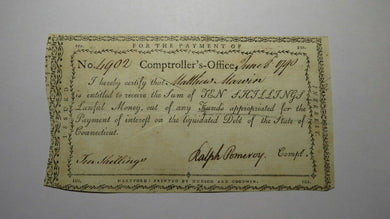 FOR THE PAYMENT OF
No. 4902 Comptroller's-Office, June 6 1790
I hereby certify that Matthew Marvin
is entitled to receive the Sum of TEN SHILLINGS
Lawful Money, out of any Funds appropriated for the
Payment of interest on the liquidated Debt of the State of
Connecticut.
Ten Shillings Ralph Pomeroy, Compt.
HARTFORD: PRINTED BY HUDSON AND GOODWIN.